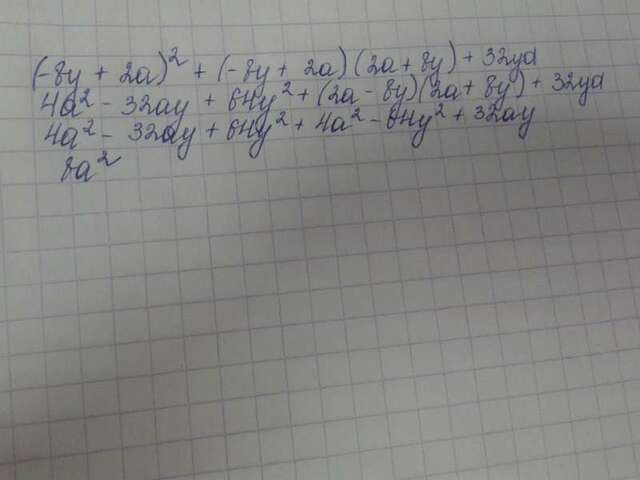 (-8y + 2a)² + (-8y + 2a)(2a + 8y) + 32ya
4a² - 32ay + 64y² + (2a - 8y)(2a + 8y) + 32ya
4a² - 32ay + 64y² + 4a² - 64y² + 32ay
8a²